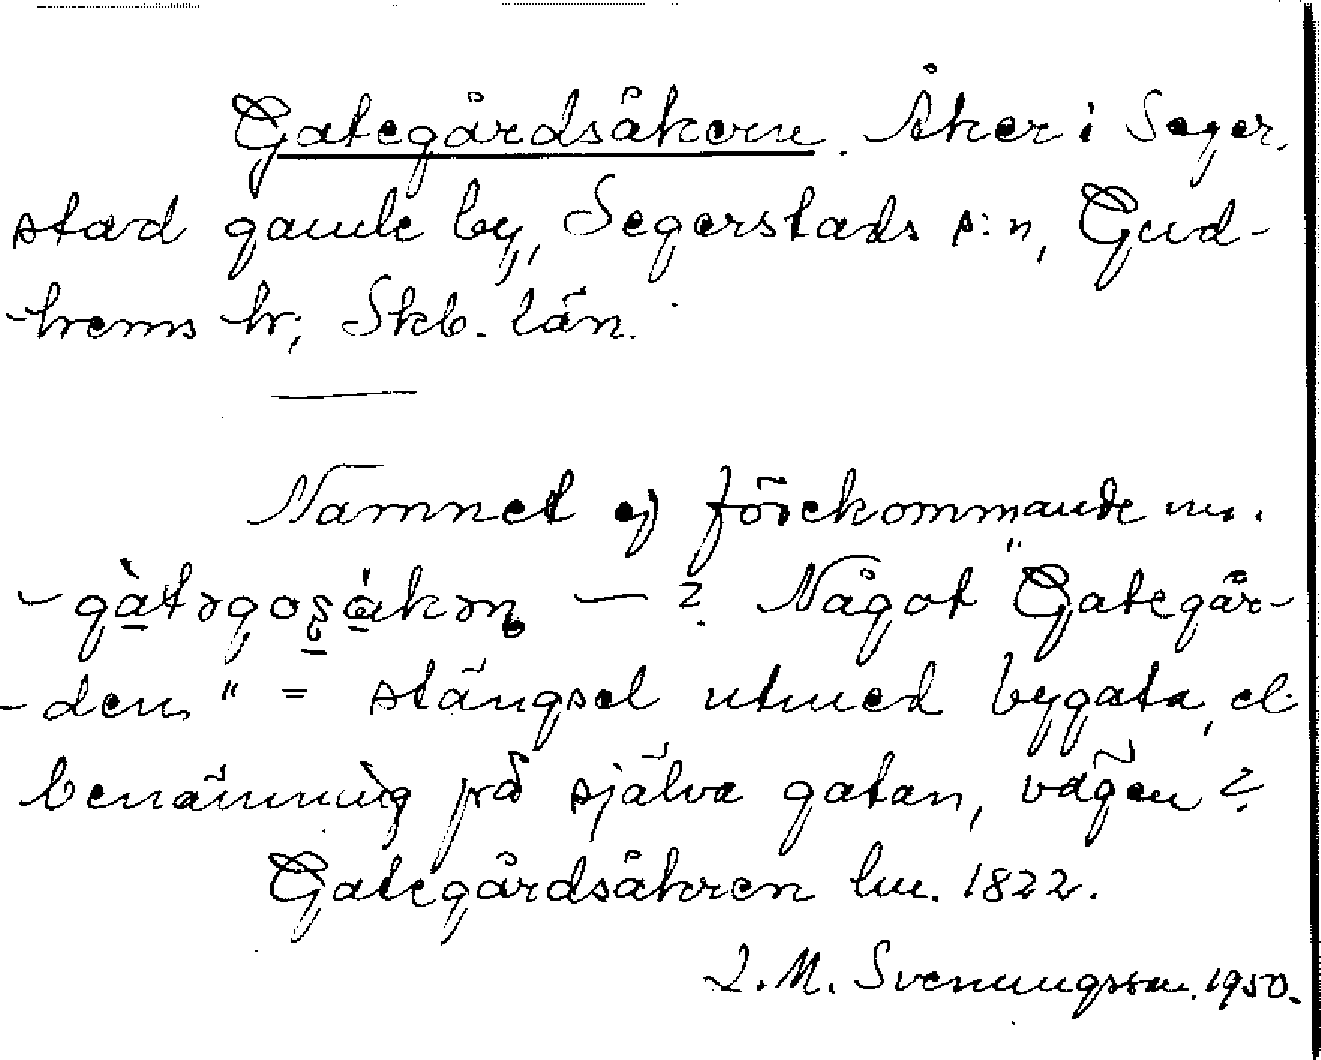 Gategårdsåkern. Åker i Seger-
stad gamle by, Segerstads s:n, Gud-
hems hr, Skb. län.
Namnet ej förekommande nu.
- gàtəgoṣákəṇ — ? Något "Gategår-
-den" = stängsel utmed bygata, el
benämning på själva gatan, vägen?
Gategårdsåkren lm. 1822.
J. M. Svenungsson. 1950.